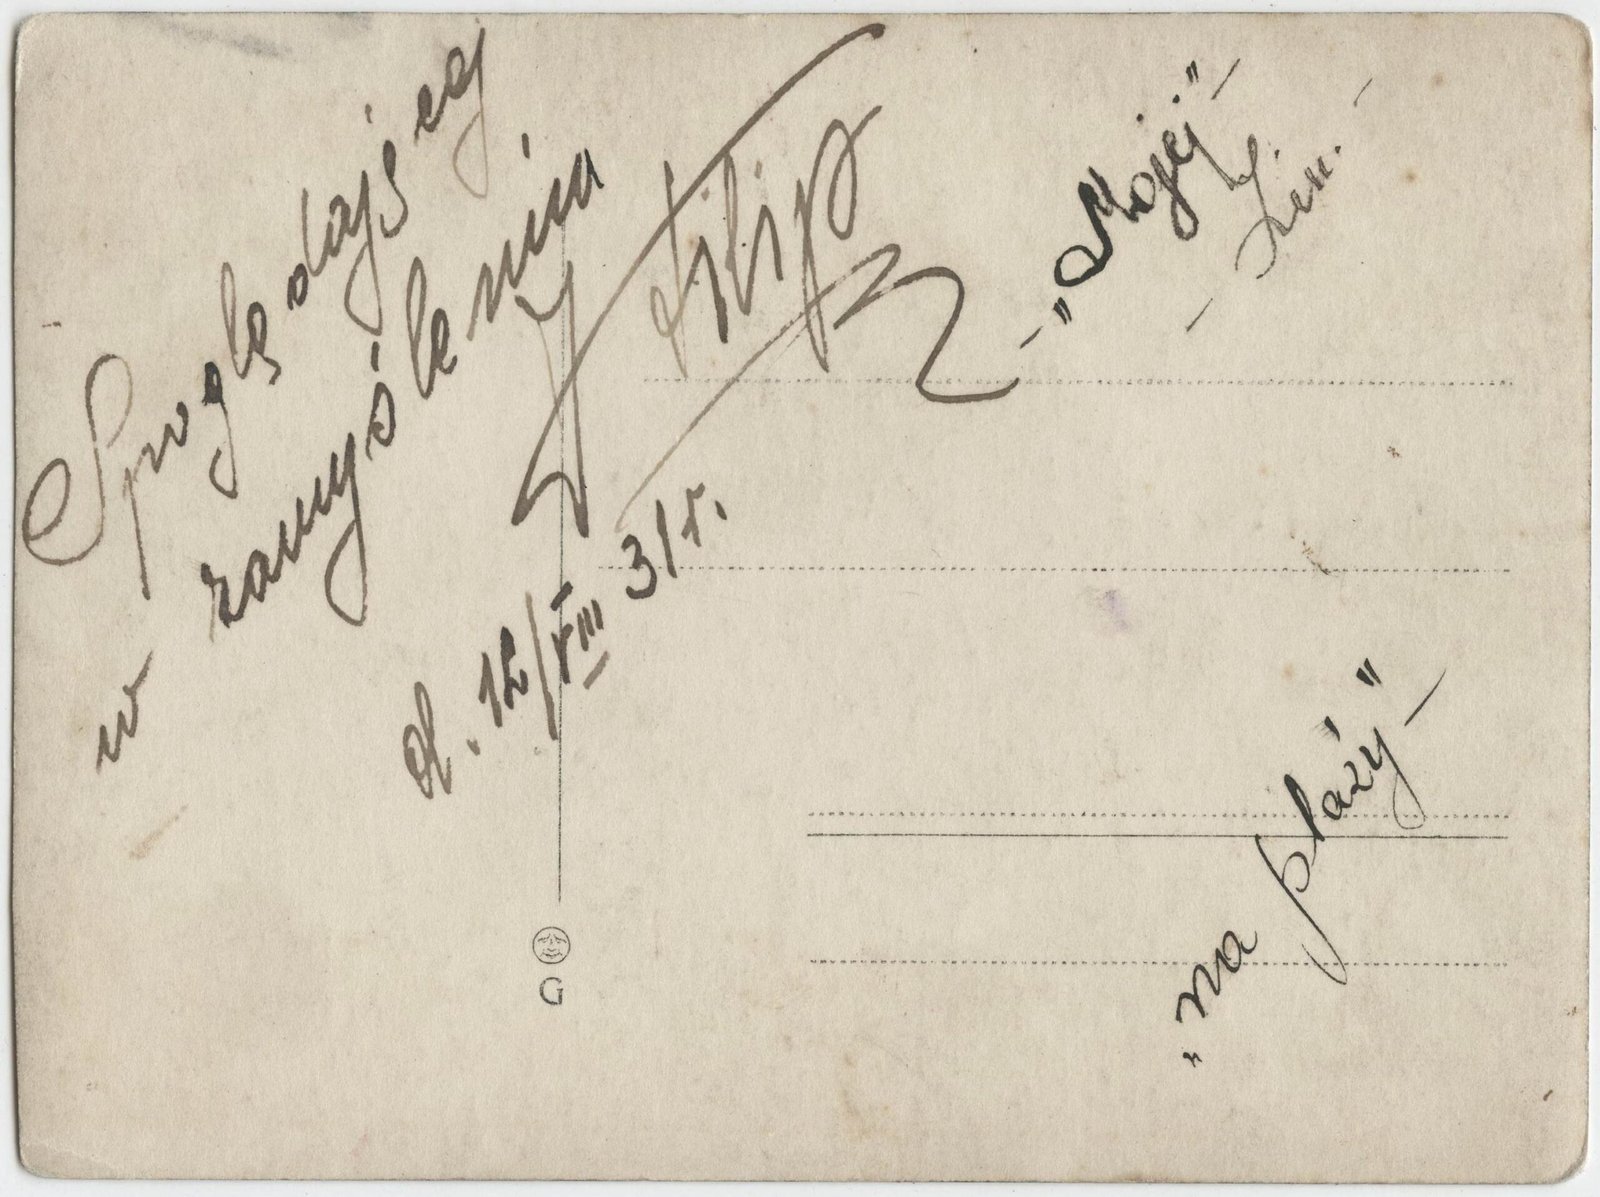 Spoglądający
w zamyśleniu
Filip
d. 12/VIII 31 r.
– „Mojej” –
– –
„na plaży” –
G